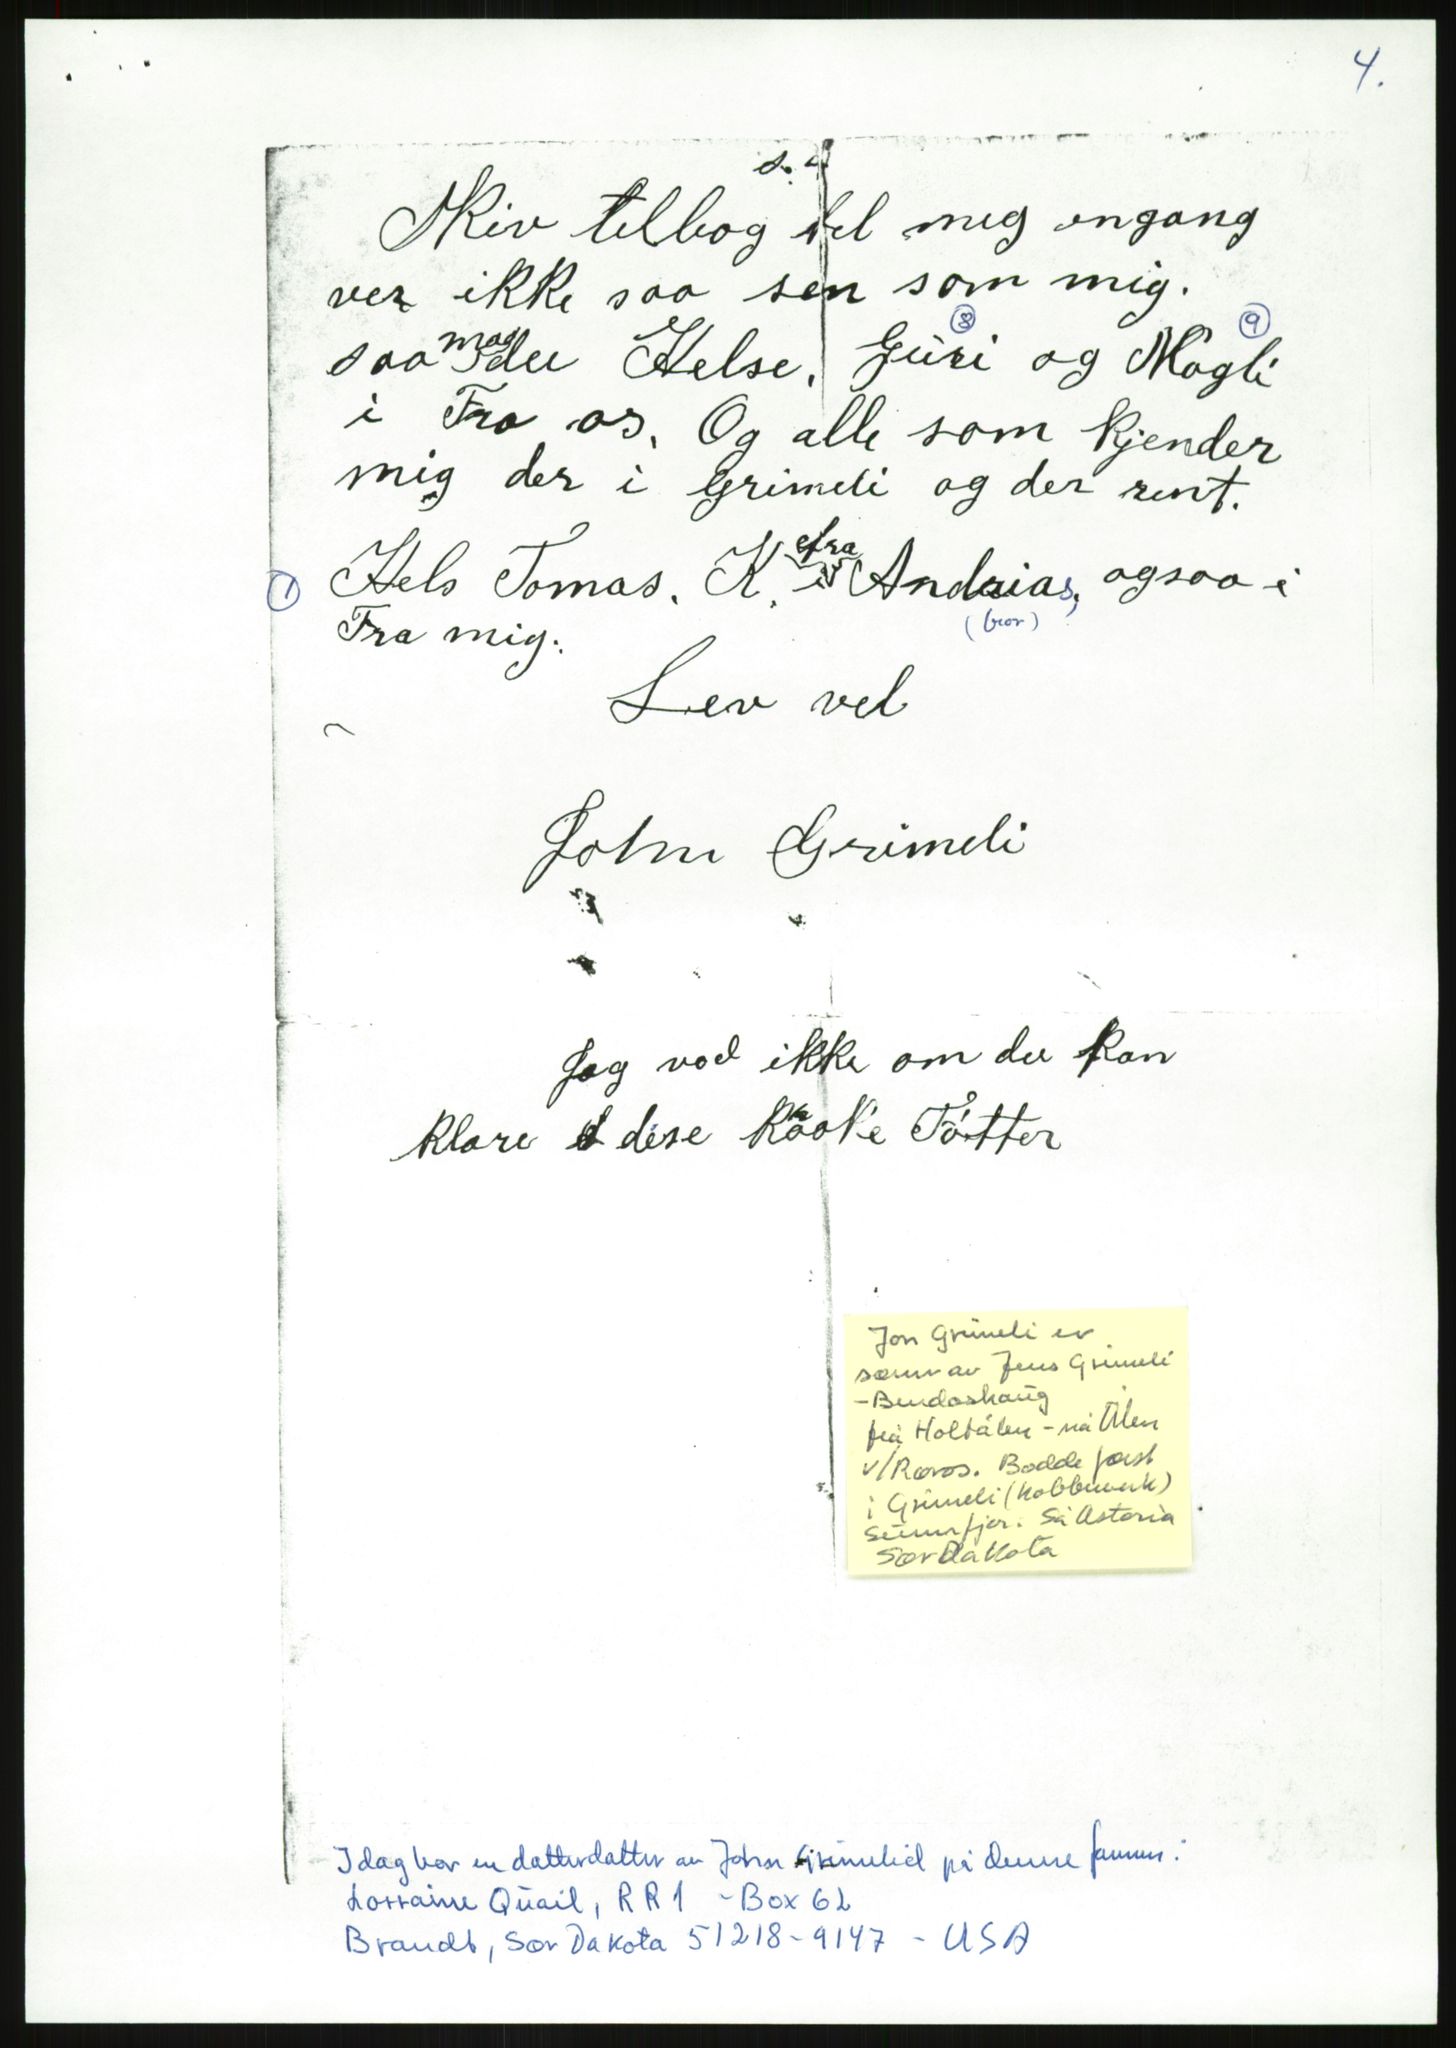 4.
s. 4
Skiv telbog tel meg engang
ver ikke saa sen som mig.
saa maa du Helse, Guri og Magli
8
9
i Fra os, Og alle som kjender
mig der i Grimeli og der runt.
1 Hels Tomas. K. efra Andrias, ogsaa i
(bror)
Fra mig.
Lev vel
John Grimeli
Jeg ved ikke om du kan
klare dise Kraake Føtter
Jon Grimeli er
sønn av Jens Grimeli
- Bendoshaug
frå Holtålen - nå Ålen
v/Røros. Bodde først
i Grimeli (kobberverk)
Sunnfjor. Så Astoria
Sør Dakota
I dag bor en datterdatter av John Grimelid på denne farmen:
Lorraine Quail, RR1 - Box 62
Brandt, Sør Dakota 51218-9147 - USA